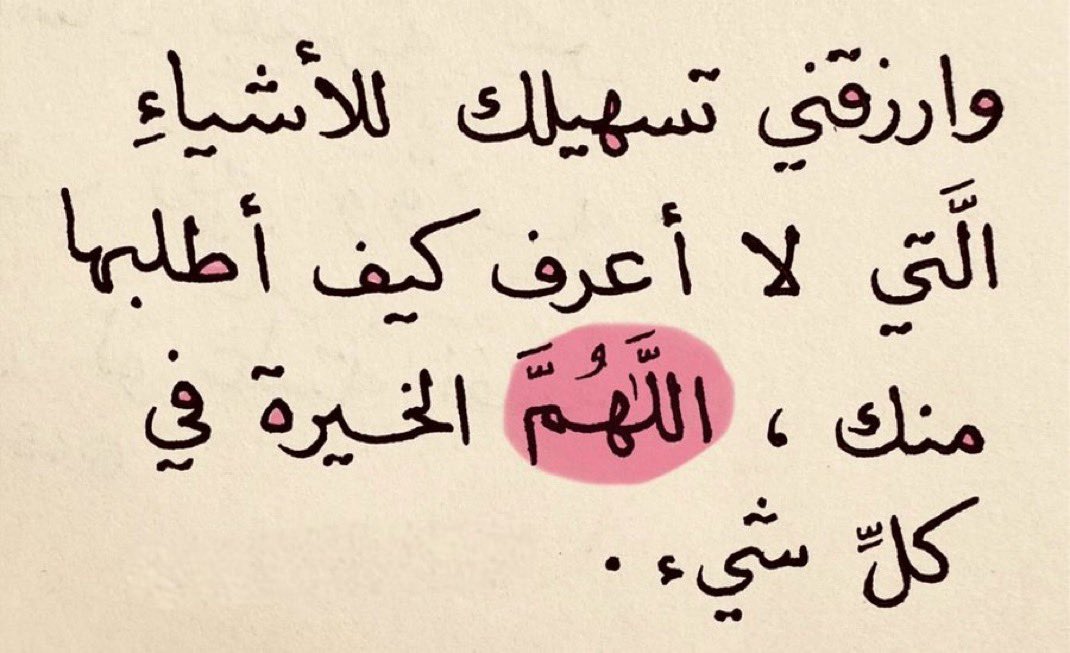 وارزقني تسهيلك للأشياءِ
الَّتي لا أعرف كيف أطلبها
منك ، اللَّهُمَّ الخيرة في
كلِّ شيء .